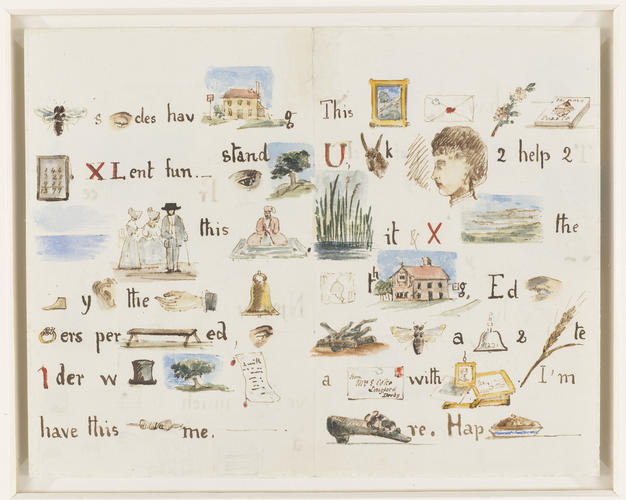 s des hav g
X L ent fun. stand
this
y the
ers per ed
1 der w
have this me.
This
U k 2 help 2
it & X the
th g, Ed
a 2 te
a with I'm
re. Hap